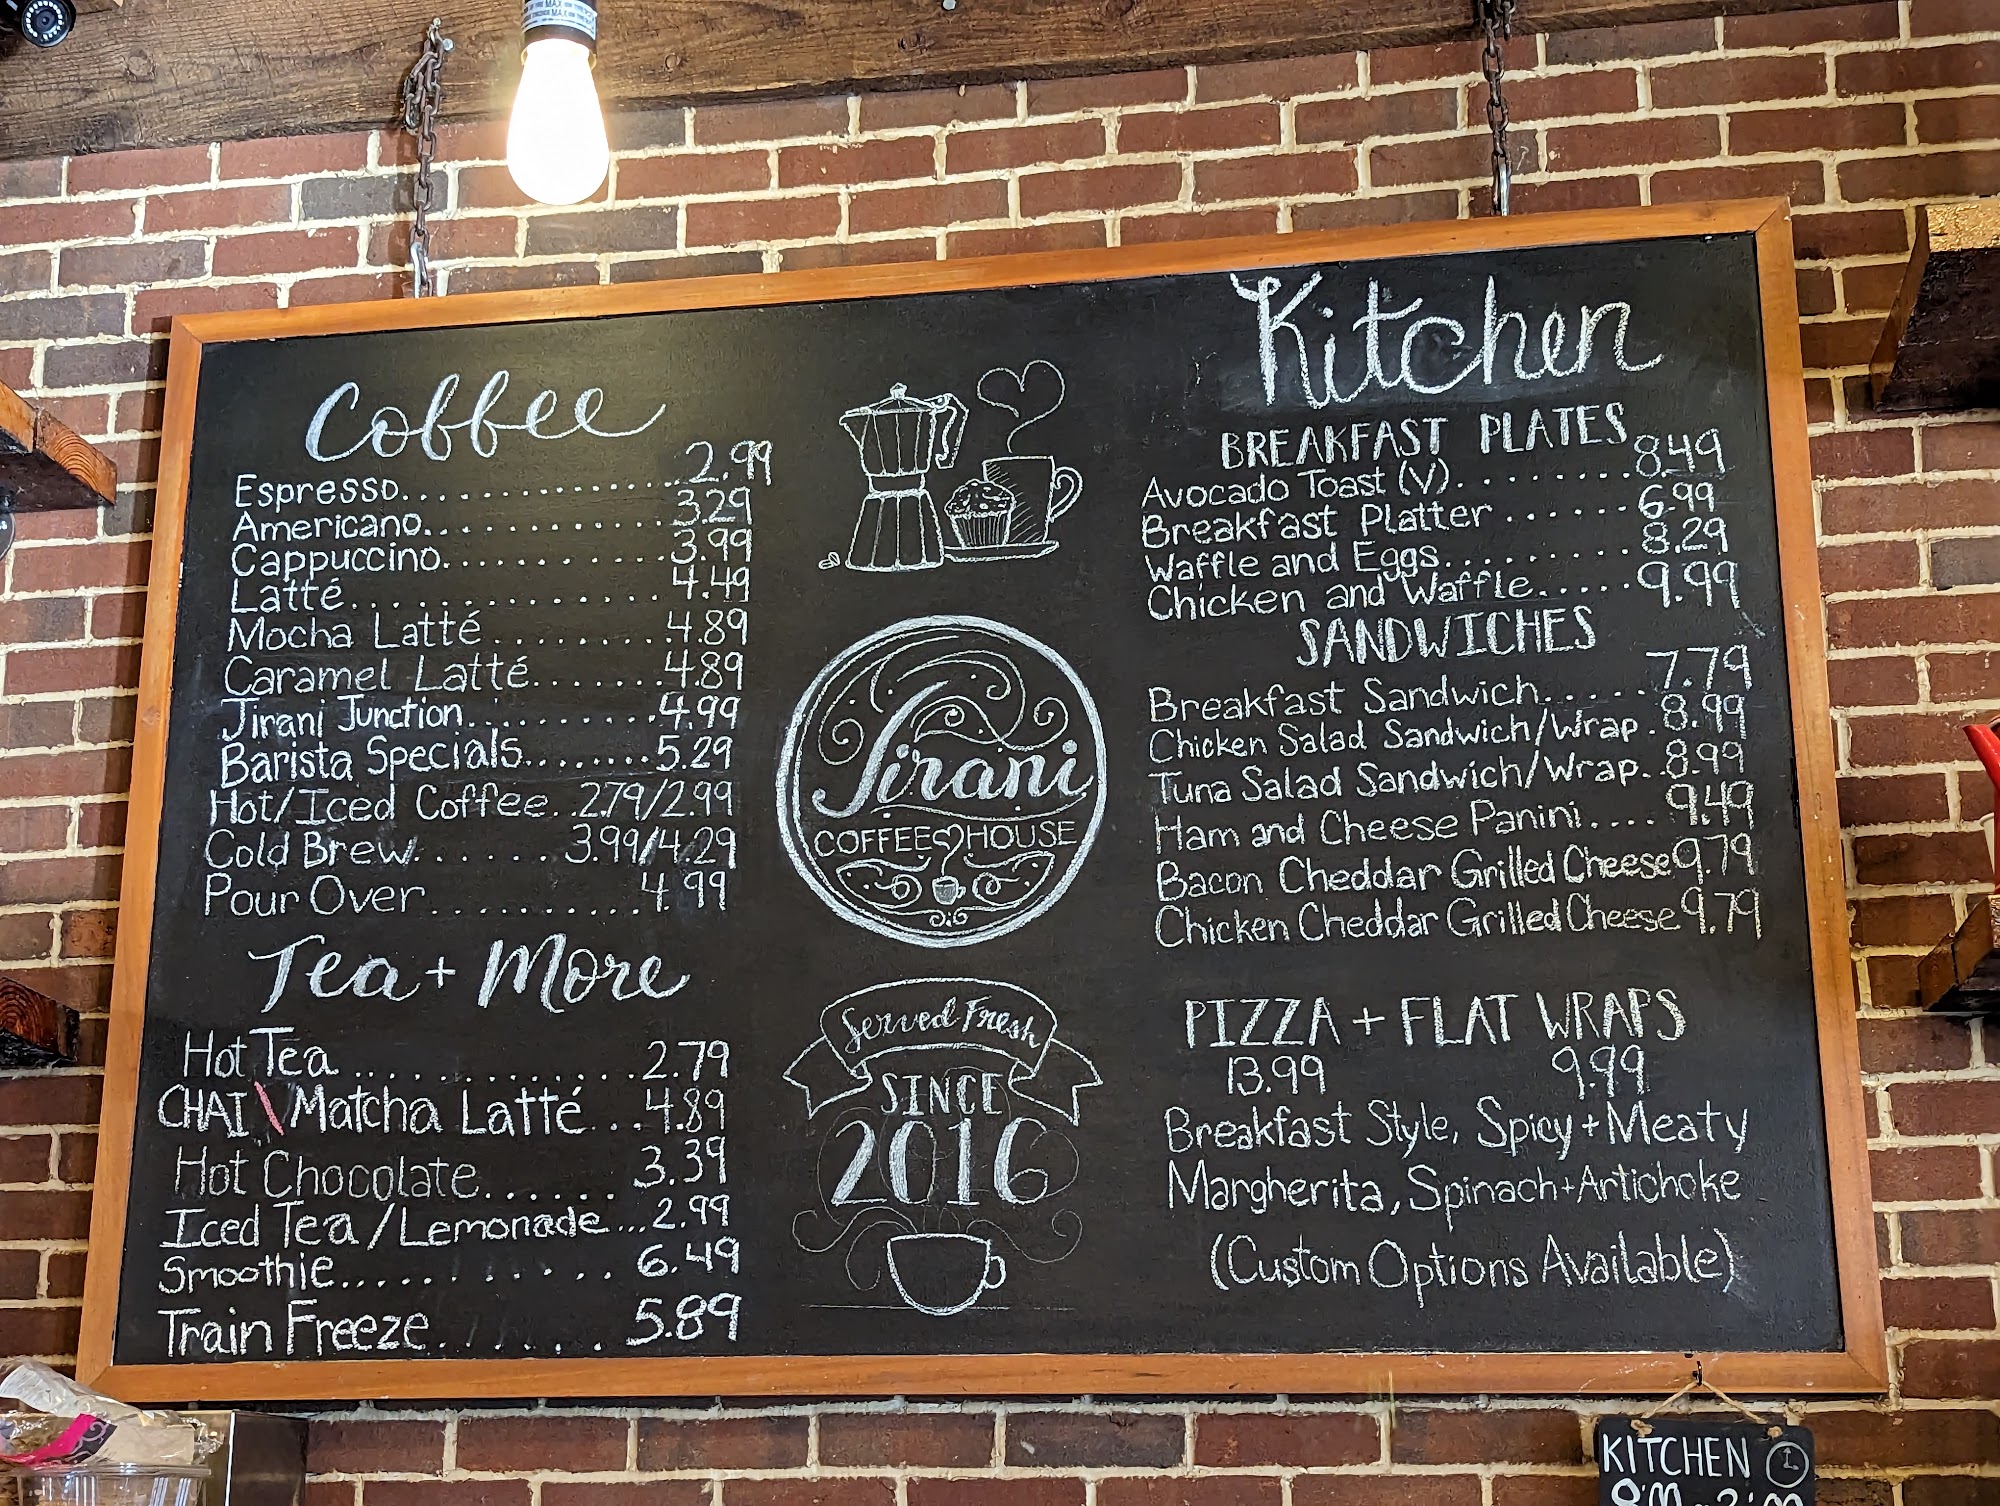 Coffee
Espresso.................2.99
Americano..............3.29
Cappuccino............3.99
Latté.................4.49
Mocha Latté.........4.89
Caramel Latté.......4.89
Jirani Junction..........4.99
Barista Specials........5.29
Hot/Iced Coffee..2.79/2.99
Cold Brew.......3.99/4.29
Pour Over..........4.99
Tea + More
Hot Tea..............2.79
CHAI \ Matcha Latté...4.89
Hot Chocolate......3.39
Iced Tea / Lemonade...2.99
Smoothie...........6.49
Train Freeze.......5.89
Jirani
COFFEE HOUSE
Served Fresh
SINCE
2016
Kitchen
BREAKFAST PLATES
Avocado Toast (V)........8.49
Breakfast Platter......6.99
Waffle and Eggs.........8.29
Chicken and Waffle.....9.99
SANDWICHES
Breakfast Sandwich.....7.79
Chicken Salad Sandwich/Wrap.8.99
Tuna Salad Sandwich/Wrap..8.99
Ham and Cheese Panini....9.49
Bacon Cheddar Grilled Cheese 9.79
Chicken Cheddar Grilled Cheese 9.79
PIZZA + FLAT WRAPS
13.99 9.99
Breakfast Style, Spicy + Meaty
Margherita, Spinach + Artichoke
(Custom Options Available)
KITCHEN